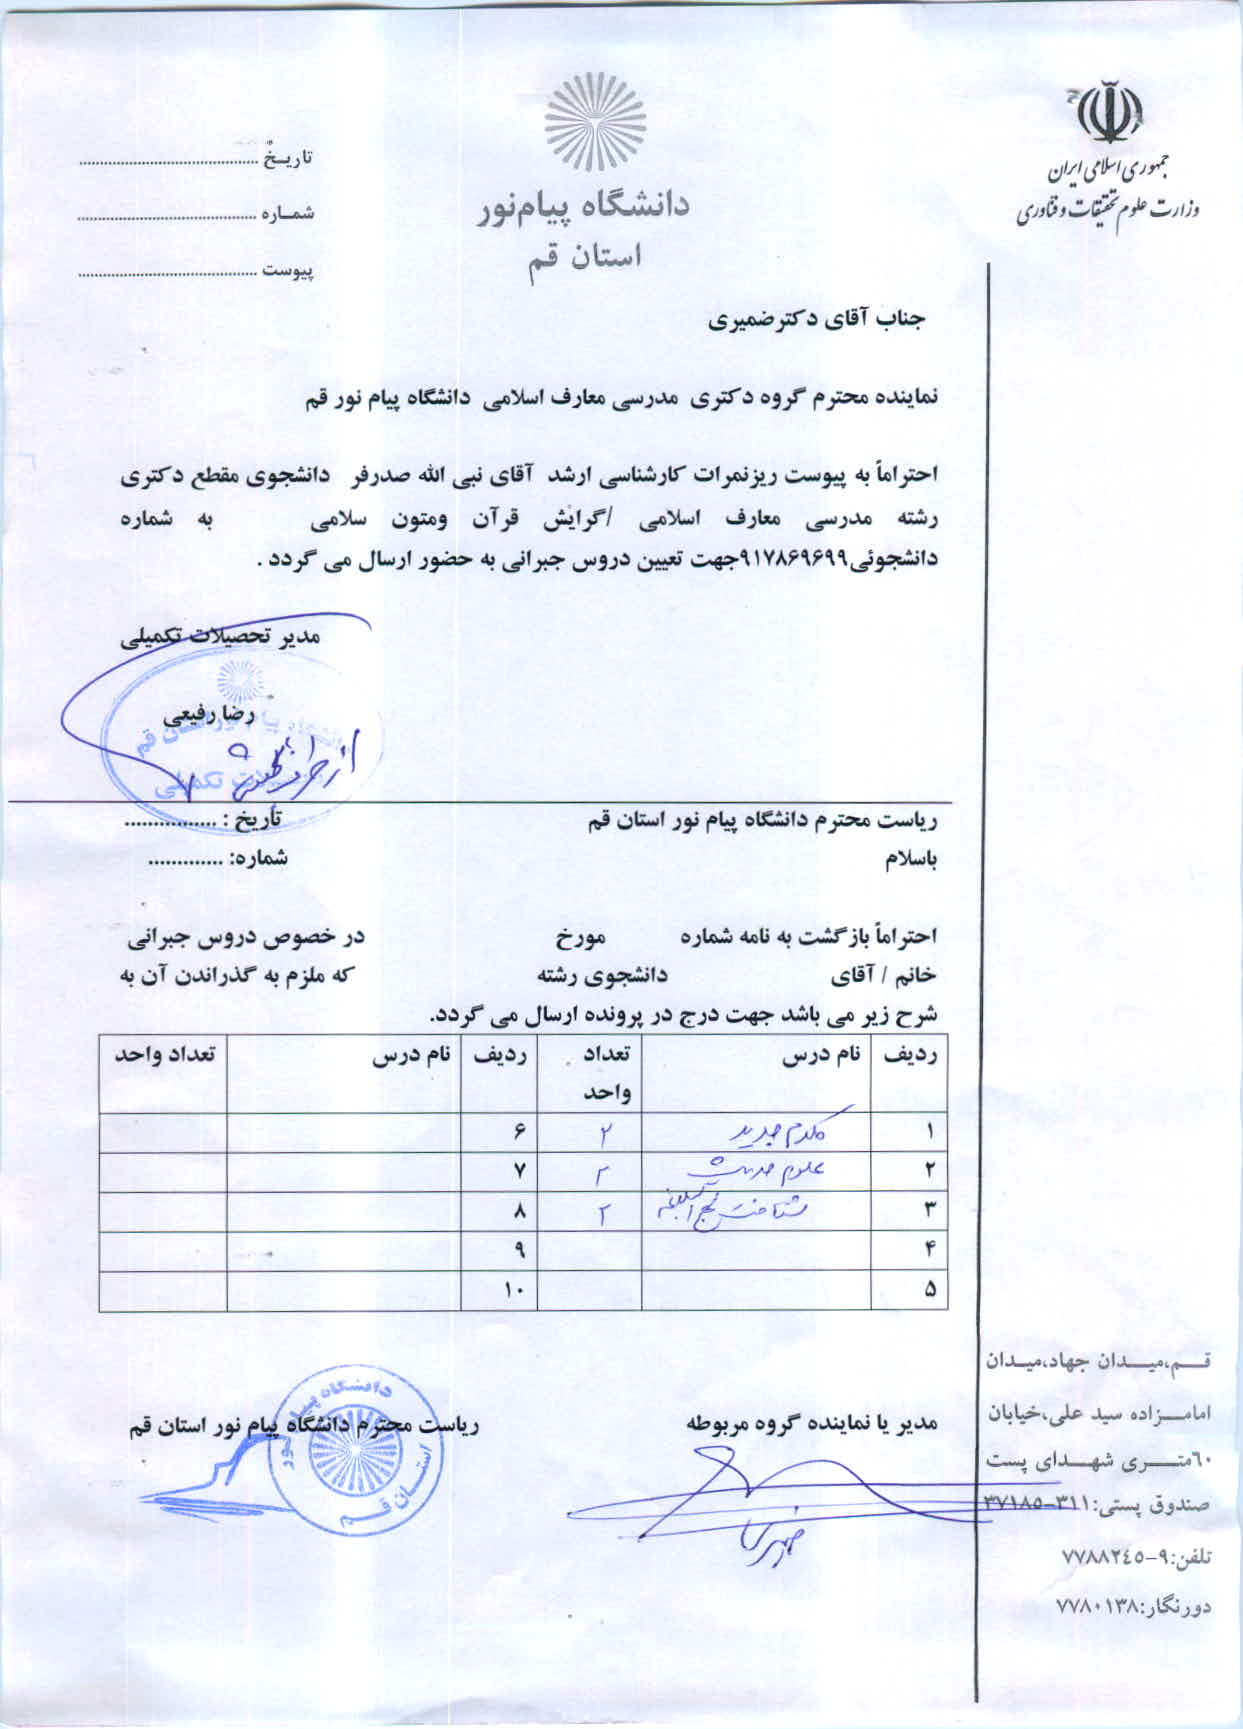 جمهوری اسلامی ایران
وزارت علوم تحقیقات و فناوری
دانشگاه پیام‌نور
استان قم
تاریخ ............................................
شماره ............................................
پیوست ............................................
جناب آقای دکترضمیری
نماینده محترم گروه دکتری مدرسی معارف اسلامی دانشگاه پیام نور قم
احتراماً به پیوست ریزنمرات کارشناسی ارشد آقای نبی الله صدرفر دانشجوی مقطع دکتری
رشته مدرسی معارف اسلامی /گرایش قرآن ومتون سلامی به شماره
دانشجوئی۹۱۷۸۶۹۶۹۹جهت تعیین دروس جبرانی به حضور ارسال می گردد .
مدیر تحصیلات تکمیلی
رضا رفیعی
دانشگاه پیام نور استان قم
تحصیلات تکمیلی
ریاست محترم دانشگاه پیام نور استان قم تاریخ : ................
باسلام شماره: .............
احتراماً بازگشت به نامه شماره مورخ در خصوص دروس جبرانی
خانم / آقای دانشجوی رشته که ملزم به گذراندن آن به
شرح زیر می باشد جهت درج در پرونده ارسال می گردد.
ردیف نام درس تعداد واحد ردیف نام درس تعداد واحد
۱ کلام جدید ۲ ۶
۲ علوم حدیث ۲ ۷
۳ شناخت نهج البلاغه ۲ ۸
۴ ۹
۵ ۱۰
مدیر یا نماینده گروه مربوطه ریاست محترم دانشگاه پیام نور استان قم
دانشگاه پیام نور
استان قم
قم،میدان جهاد،میدان
امامزاده سید علی،خیابان
٦٠متری شهدای پست
صندوق پستی:۳۱۱-۳۷۱۸۵
تلفن:۹-۷۷۸۸۲٤٥
دورنگار:۷۷۸۰۱۳۸